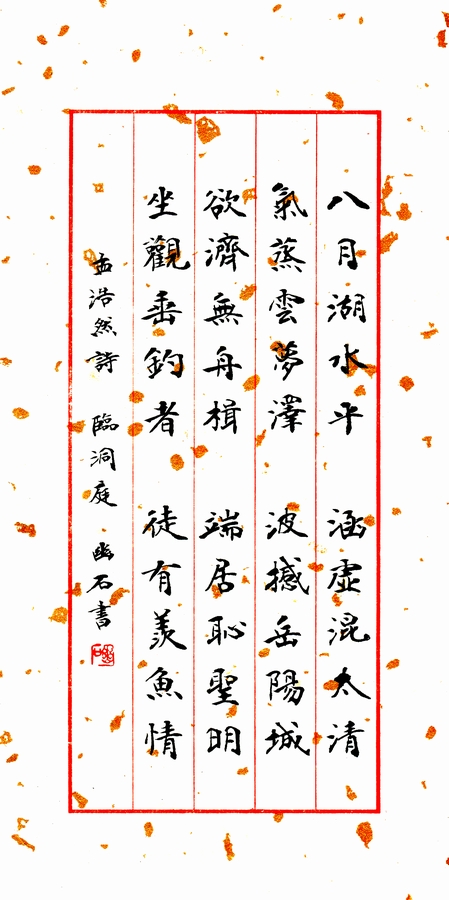 八月湖水平 涵虛混太清
氣蒸雲夢澤 波撼岳陽城
欲濟無舟楫 端居恥聖明
坐觀垂釣者 徒有羨魚情
孟浩然詩 臨洞庭 幽石書